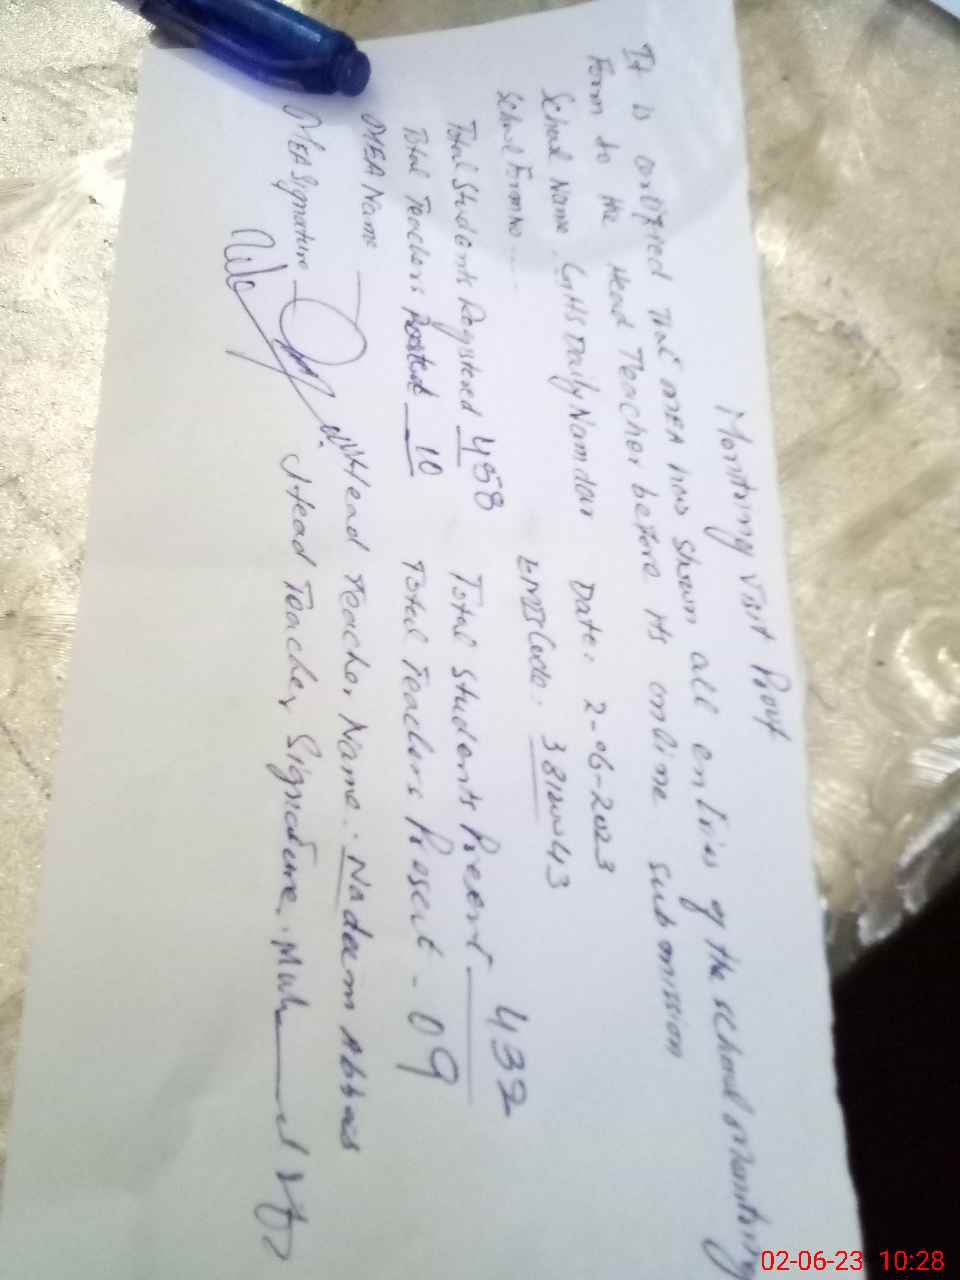 Monitoring Visit Proof
It is certified that MEA has shown all entries of the school monitoring
Form to the Head Teacher before its online submission
School Name. GHS Daily Namdar Date: 2-06-2023
School Form No EMIS Code:
Total Students Registered 458 Total Students Present 432
Total Teachers Posted 10 Total Teachers Present - 09
MEA Name Head Teacher Name: Nadeem Abbas
MEA Signature Head Teacher Signature.
02-06-23 10:28